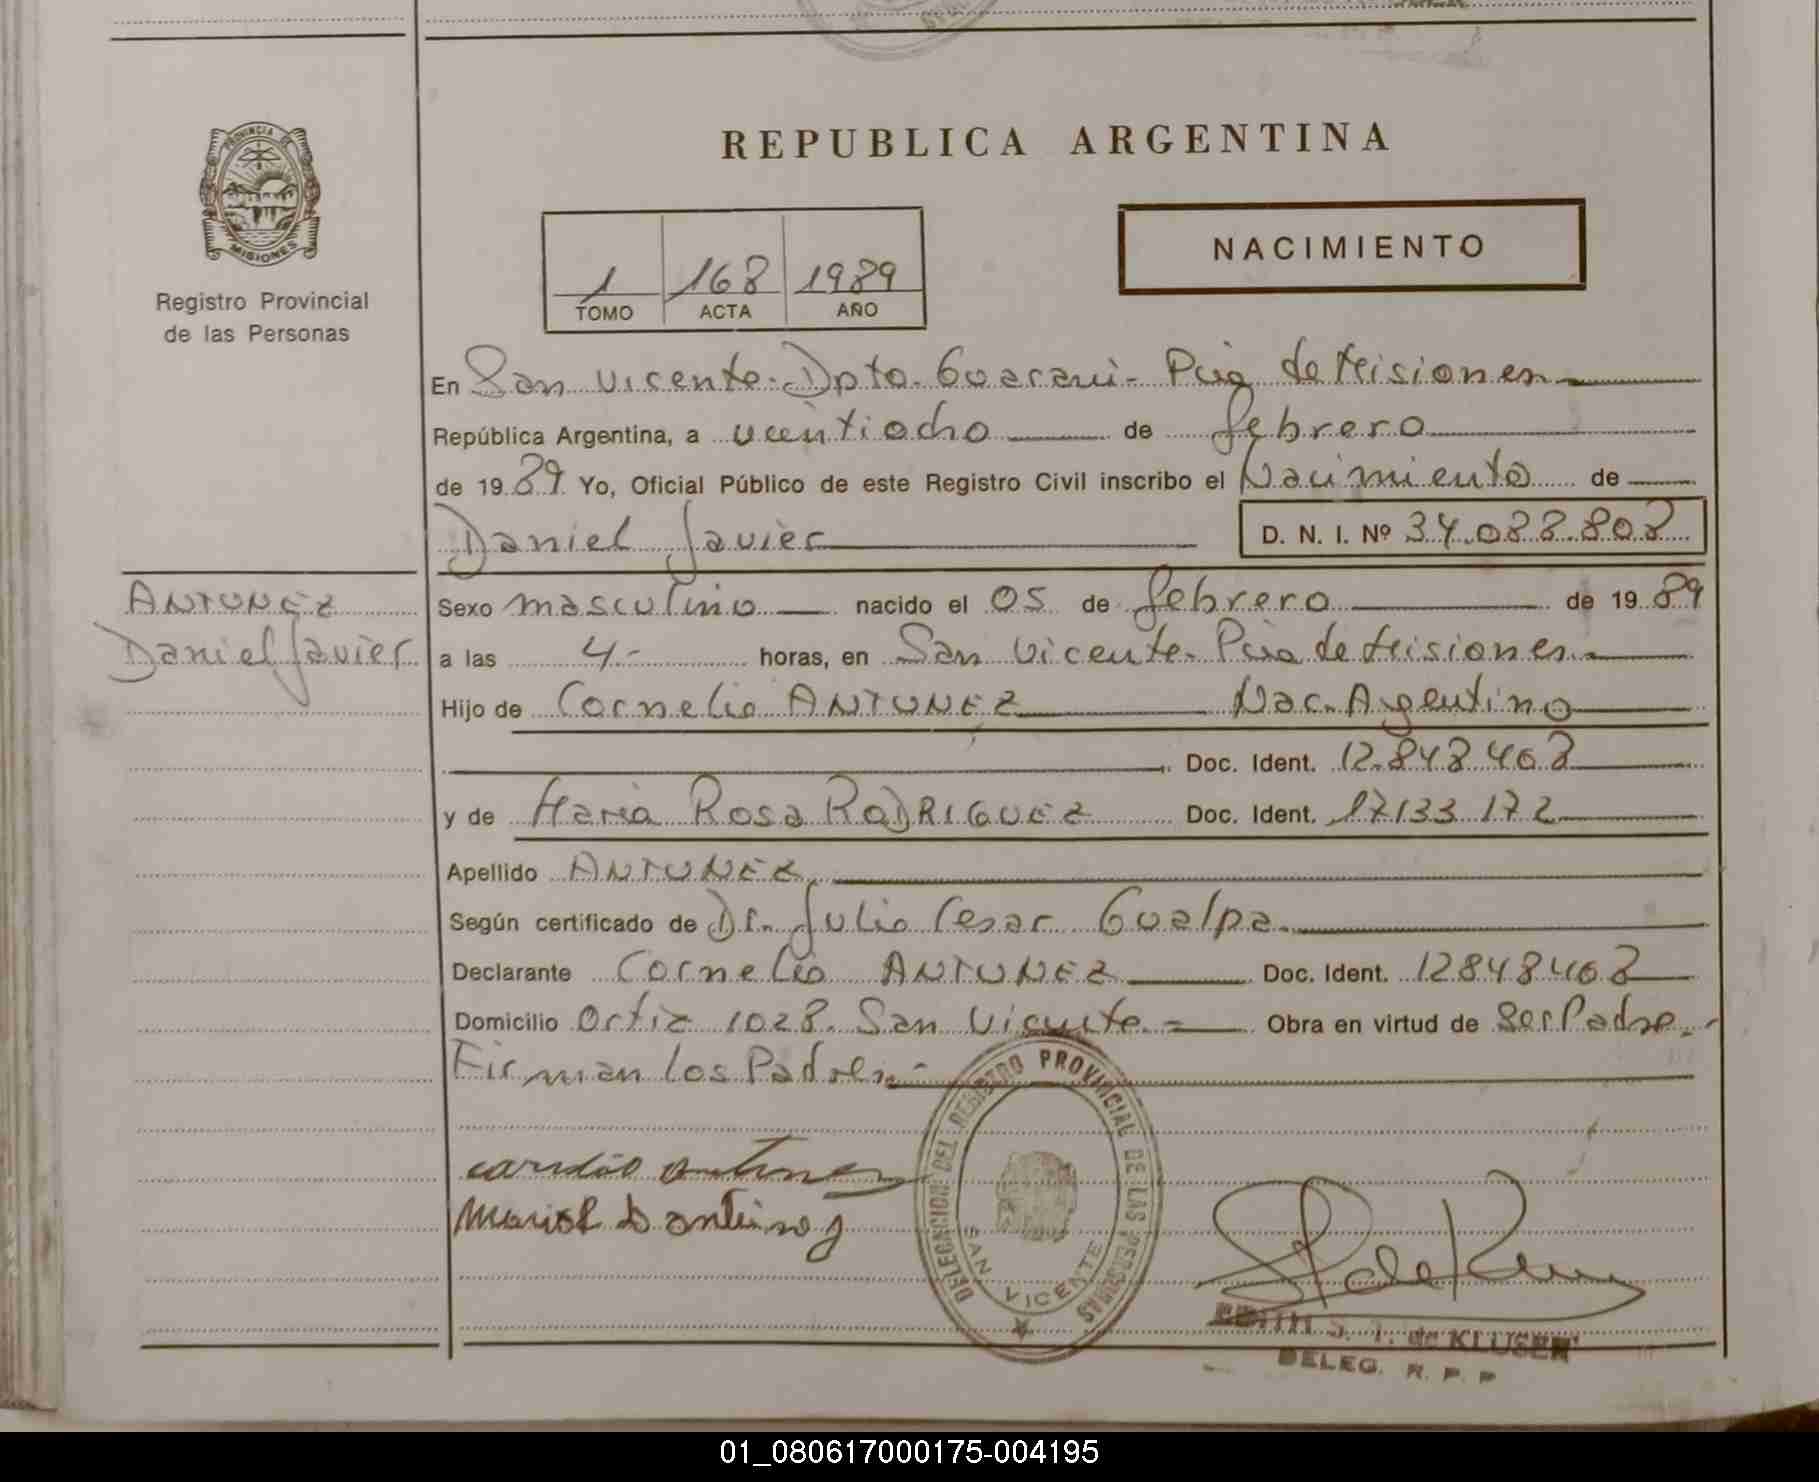 REPUBLICA ARGENTINA
PROVINCIA DE
MISIONES
Registro Provincial
de las Personas
NACIMIENTO
1 168 1989
TOMO ACTA AÑO
En San Vicente. Dpto. Guarani - Pcia de Misiones
República Argentina, a veintiocho de febrero
de 1989 Yo, Oficial Público de este Registro Civil inscribo el Nacimiento de
Daniel Javier D. N. I. Nº 34.088.808
ANTUNEZ
Daniel Javier
Sexo masculino nacido el 05 de febrero de 1989
a las 4.- horas, en San Vicente. Pcia de Misiones.
Hijo de Cornelio ANTUNEZ Nac. Argentino
Doc. Ident. 12.848.408
y de Maria Rosa RODRIGUEZ Doc. Ident. 17133172
Apellido ANTUNEZ
Según certificado de Dr. Julio Cesar Gualpa.
Declarante Cornelio ANTUNEZ Doc. Ident. 12848408
Domicilio Ortiz 1028. San Vicente. Obra en virtud de ser Padre.-
Firman los Padres.-
DELEGACION DEL REGISTRO PROVINCIAL DE LAS PERSONAS
SAN VICENTE
EDITH S. T. de KLUSER
DELEG. R. P. P
01_080617000175-004195